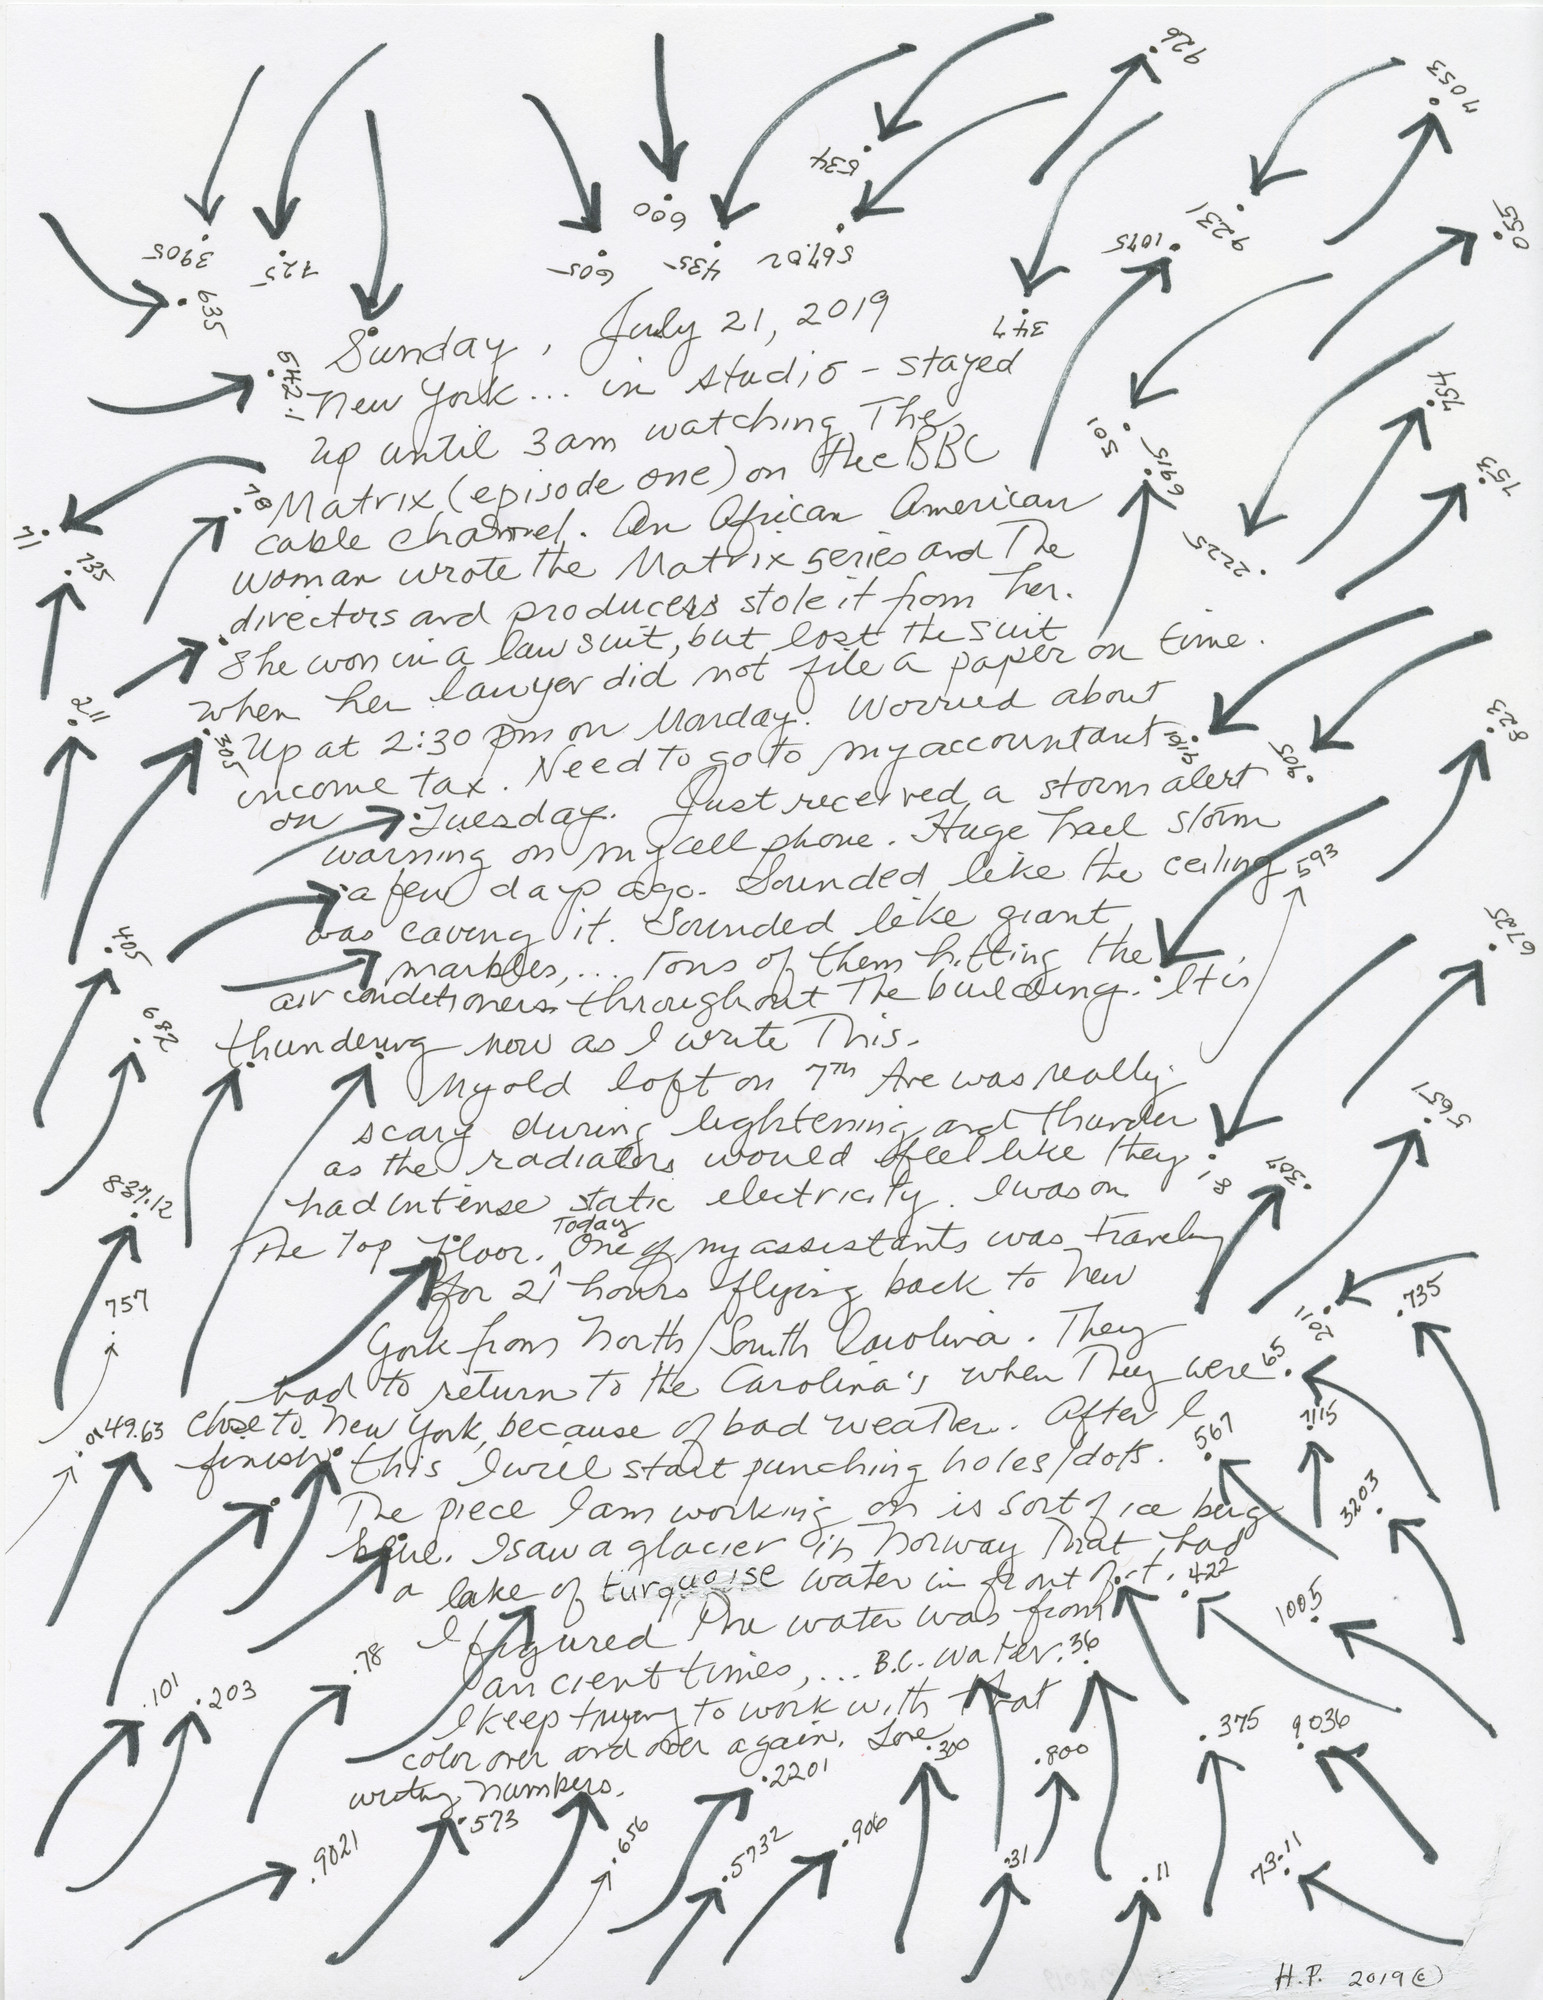 926
7053
534
600
9231
055
3905
725
605
435
567.02
1075
635
347
Sunday, July 21, 2019
642.1
New York... in studio - stayed
up until 3am watching The
754
501
Matrix (episode one) on the BBC
6915
753
78
cable channel. An African American
71
735
woman wrote the Matrix series and The
2225
directors and producers stole it from her.
She won in a lawsuit, but lost the suit
when her lawyer did not file a paper on time.
211
305
Up at 2:30 pm on Monday. Worried about
823
income tax. Need to go to my accountant
905
on Tuesday. Just received a storm alert
warning on my cell phone. Huge hail storm
593
a few days ago. Sounded like the ceiling
was caving it. Sounded like giant
405
marbles,... tons of them hitting the
air conditioners throughout The building. It is
682
thundering now as I write This.
My old loft on 7th Ave was really
5651
scary during lightening and thunder
as the radiators would feel like they
81
307
had intense static electricity. I was on
837.12
Today
The Top floor. One of my assistants was traveling
for 21 hours flying back to New
757
2011
.735
York from North/South Carolina. They
had to return to the Carolina's when They were
65
.0149.63
close to New York, because of bad weather. After I
7115
567
finish this I will start punching holes/dots.
3203
The piece I am working on is sort of ice berg
blue. I saw a glacier in Norway That had
a lake of turquoise water in front of it.
.422
1005
I figured The water was from
ancient times,... B.C. water.
36
.78
.101
.203
I keep trying to work with that
.375
9036
color over and over again. Love
.300
.800
writing numbers.
.2201
.573
.656
.5732
.906
.9021
.31
.11
73.11
H.P. 2019 ©